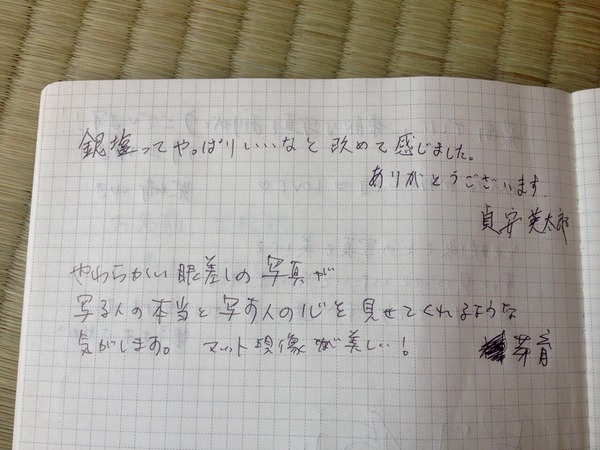 銀塩ってやっぱりいいなと改めて感じました。
ありがとうございます.
貞安 英太郎
やわらかい眼差しの写真が
写る人の本当と写す人の心を見せてくれるような
気がします。 マット現像が美しい!